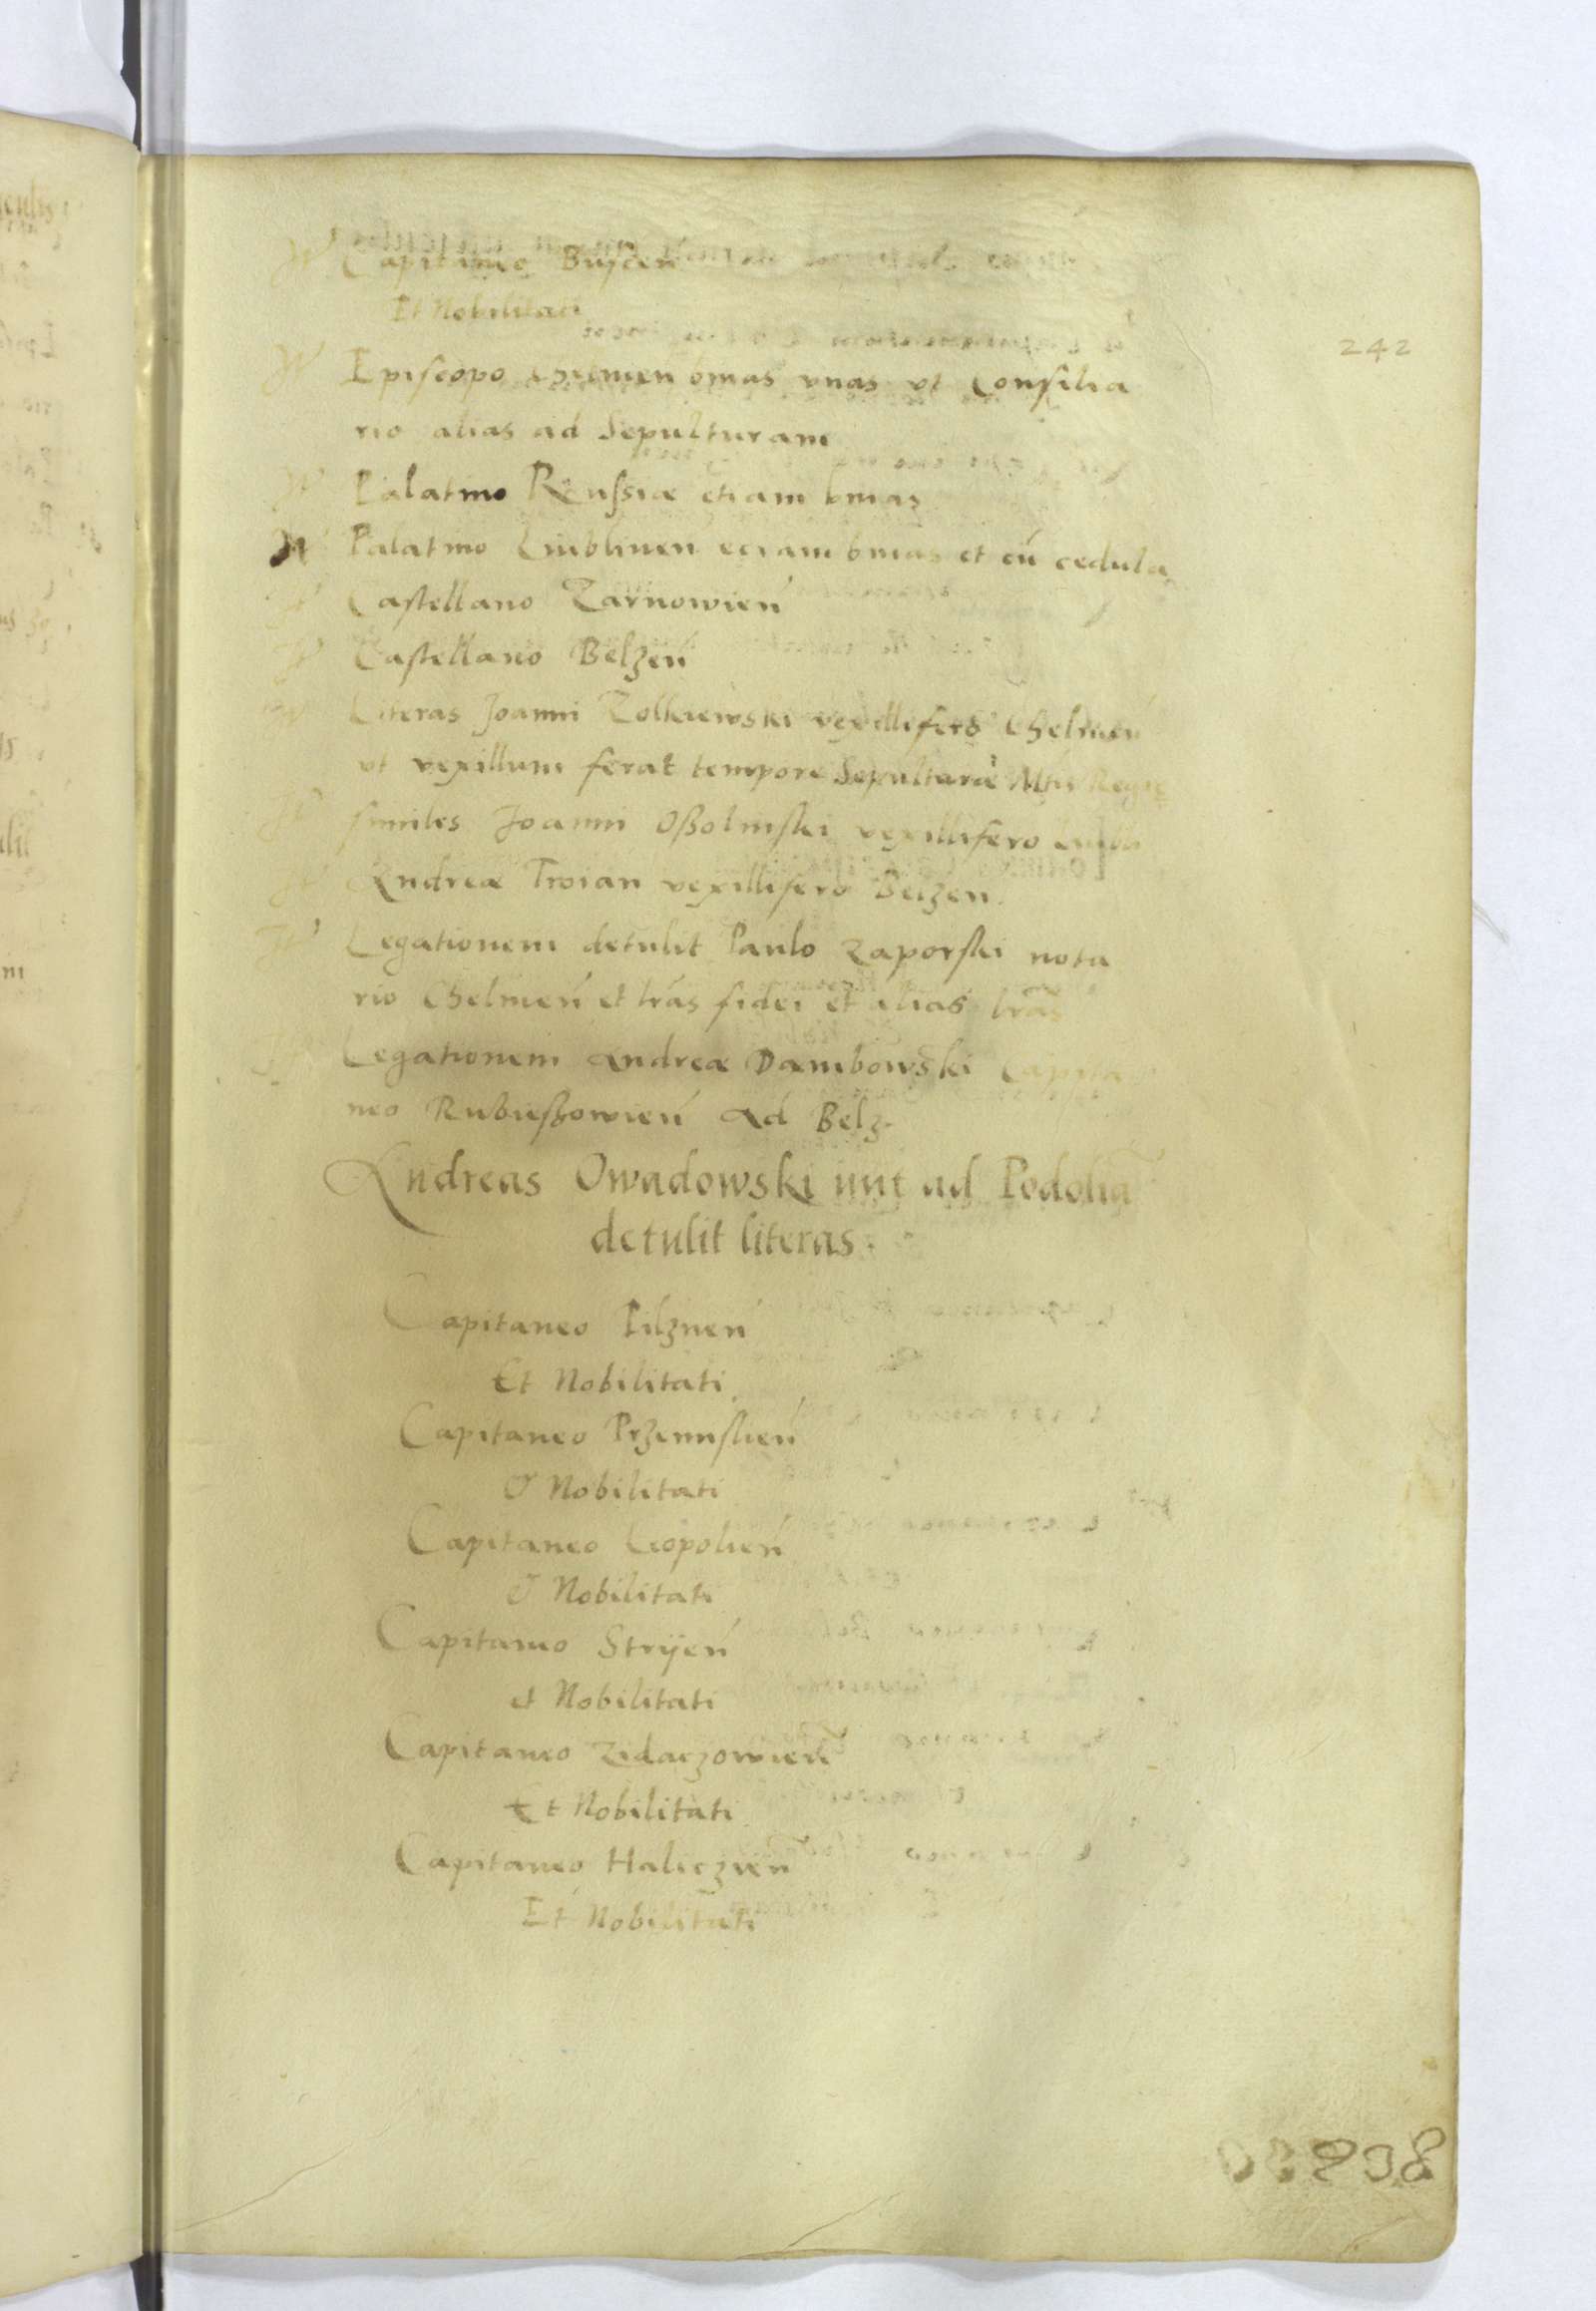 Capitaneo Buscen
Et Nobilitati
242
Episcopo Chelmen binas vnas vt Consilia
rio alias ad Sepulturam
Palatino Russiæ etiam binas
Palatino Lublinen eciam binas et cū cedula
Castellano Zarnowień
Castellano Belzeń
Literas Joanni Zolkiewski vexillifero Chelmeń
vt vexillum ferat tempore Sepulturæ Mtis Regiæ
similes Joanni Oßolinski vexillifero
Andreæ Troian vexillifero Belzen.
Legationem detulit Paulo Zaporski nota
rio Chelmeń et lrās fidei et alias lrās
Legationem Andreæ Dambowski Capita
neo Rubießowień ad Belz.
Andreas Owadowski ad Podoliā
detulit literas.
Capitaneo Pilzneń
Et Nobilitati
Capitaneo Przemislień
& Nobilitati
Capitaneo Leopolień
& Nobilitati
Capitaneo Strÿeń
et Nobilitati
Capitaneo Zidaczowień
Et Nobilitati
Capitaneo Haliczień
Et Nobilitati